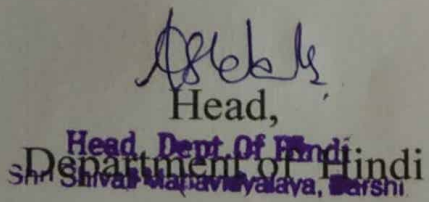 Head,
Head, Dept. Of Hindi
Department of Hindi
Shri Shivaji Mahavidyalaya, Barshi.